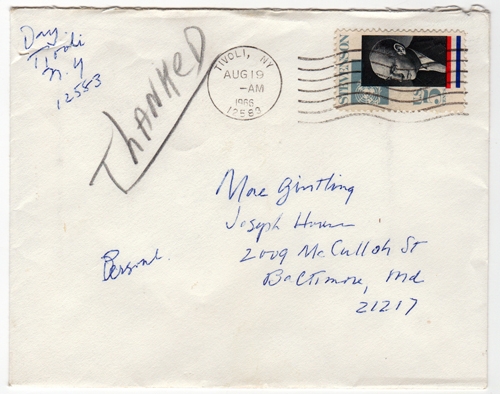 Day
Tivoli
N.Y
12583
THANKED
TIVOLI, NY
AUG 19
-AM
1966
12583
STEVENSON
Mac Gintling
Joseph House
2009 McCulloh St
Baltimore, Md
21217
Personal